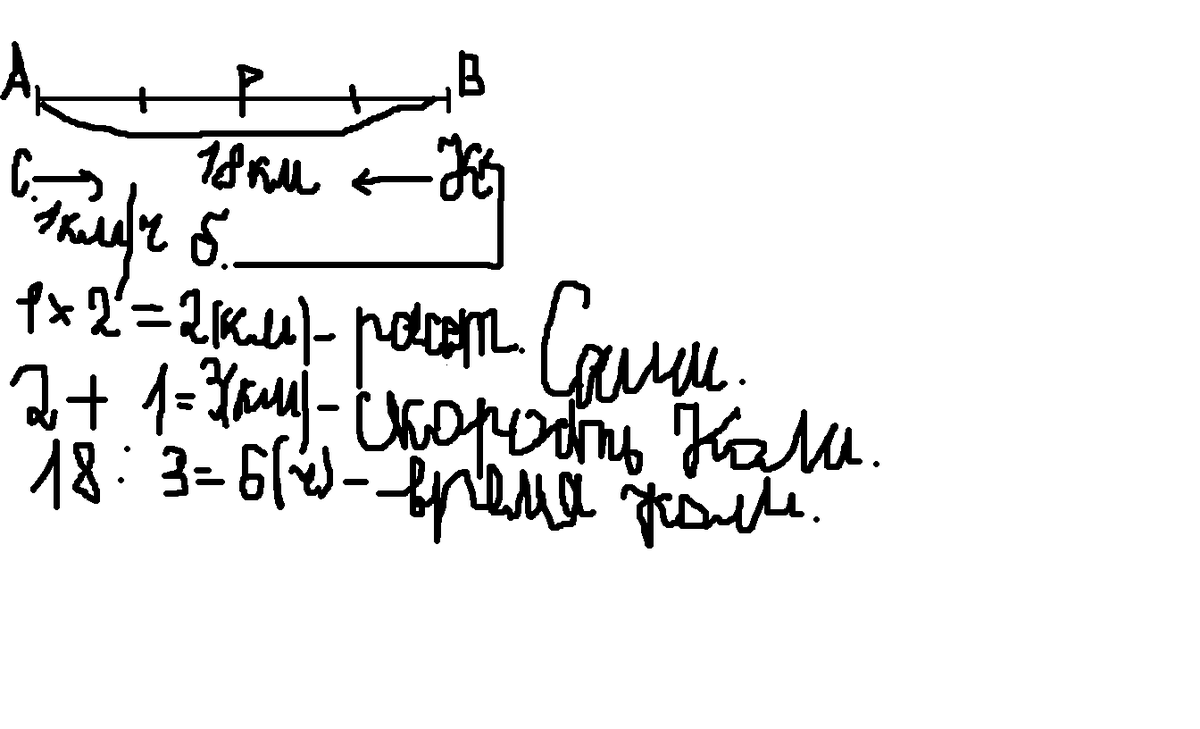 А Р В
С. 18км Ж
1км/ч б.
1 × 2 = 2(км) - расст. Сами.
2 + 1 = 3(км) - скорость Жоли.
18 : 3 = 6(ч) - время Жоли.